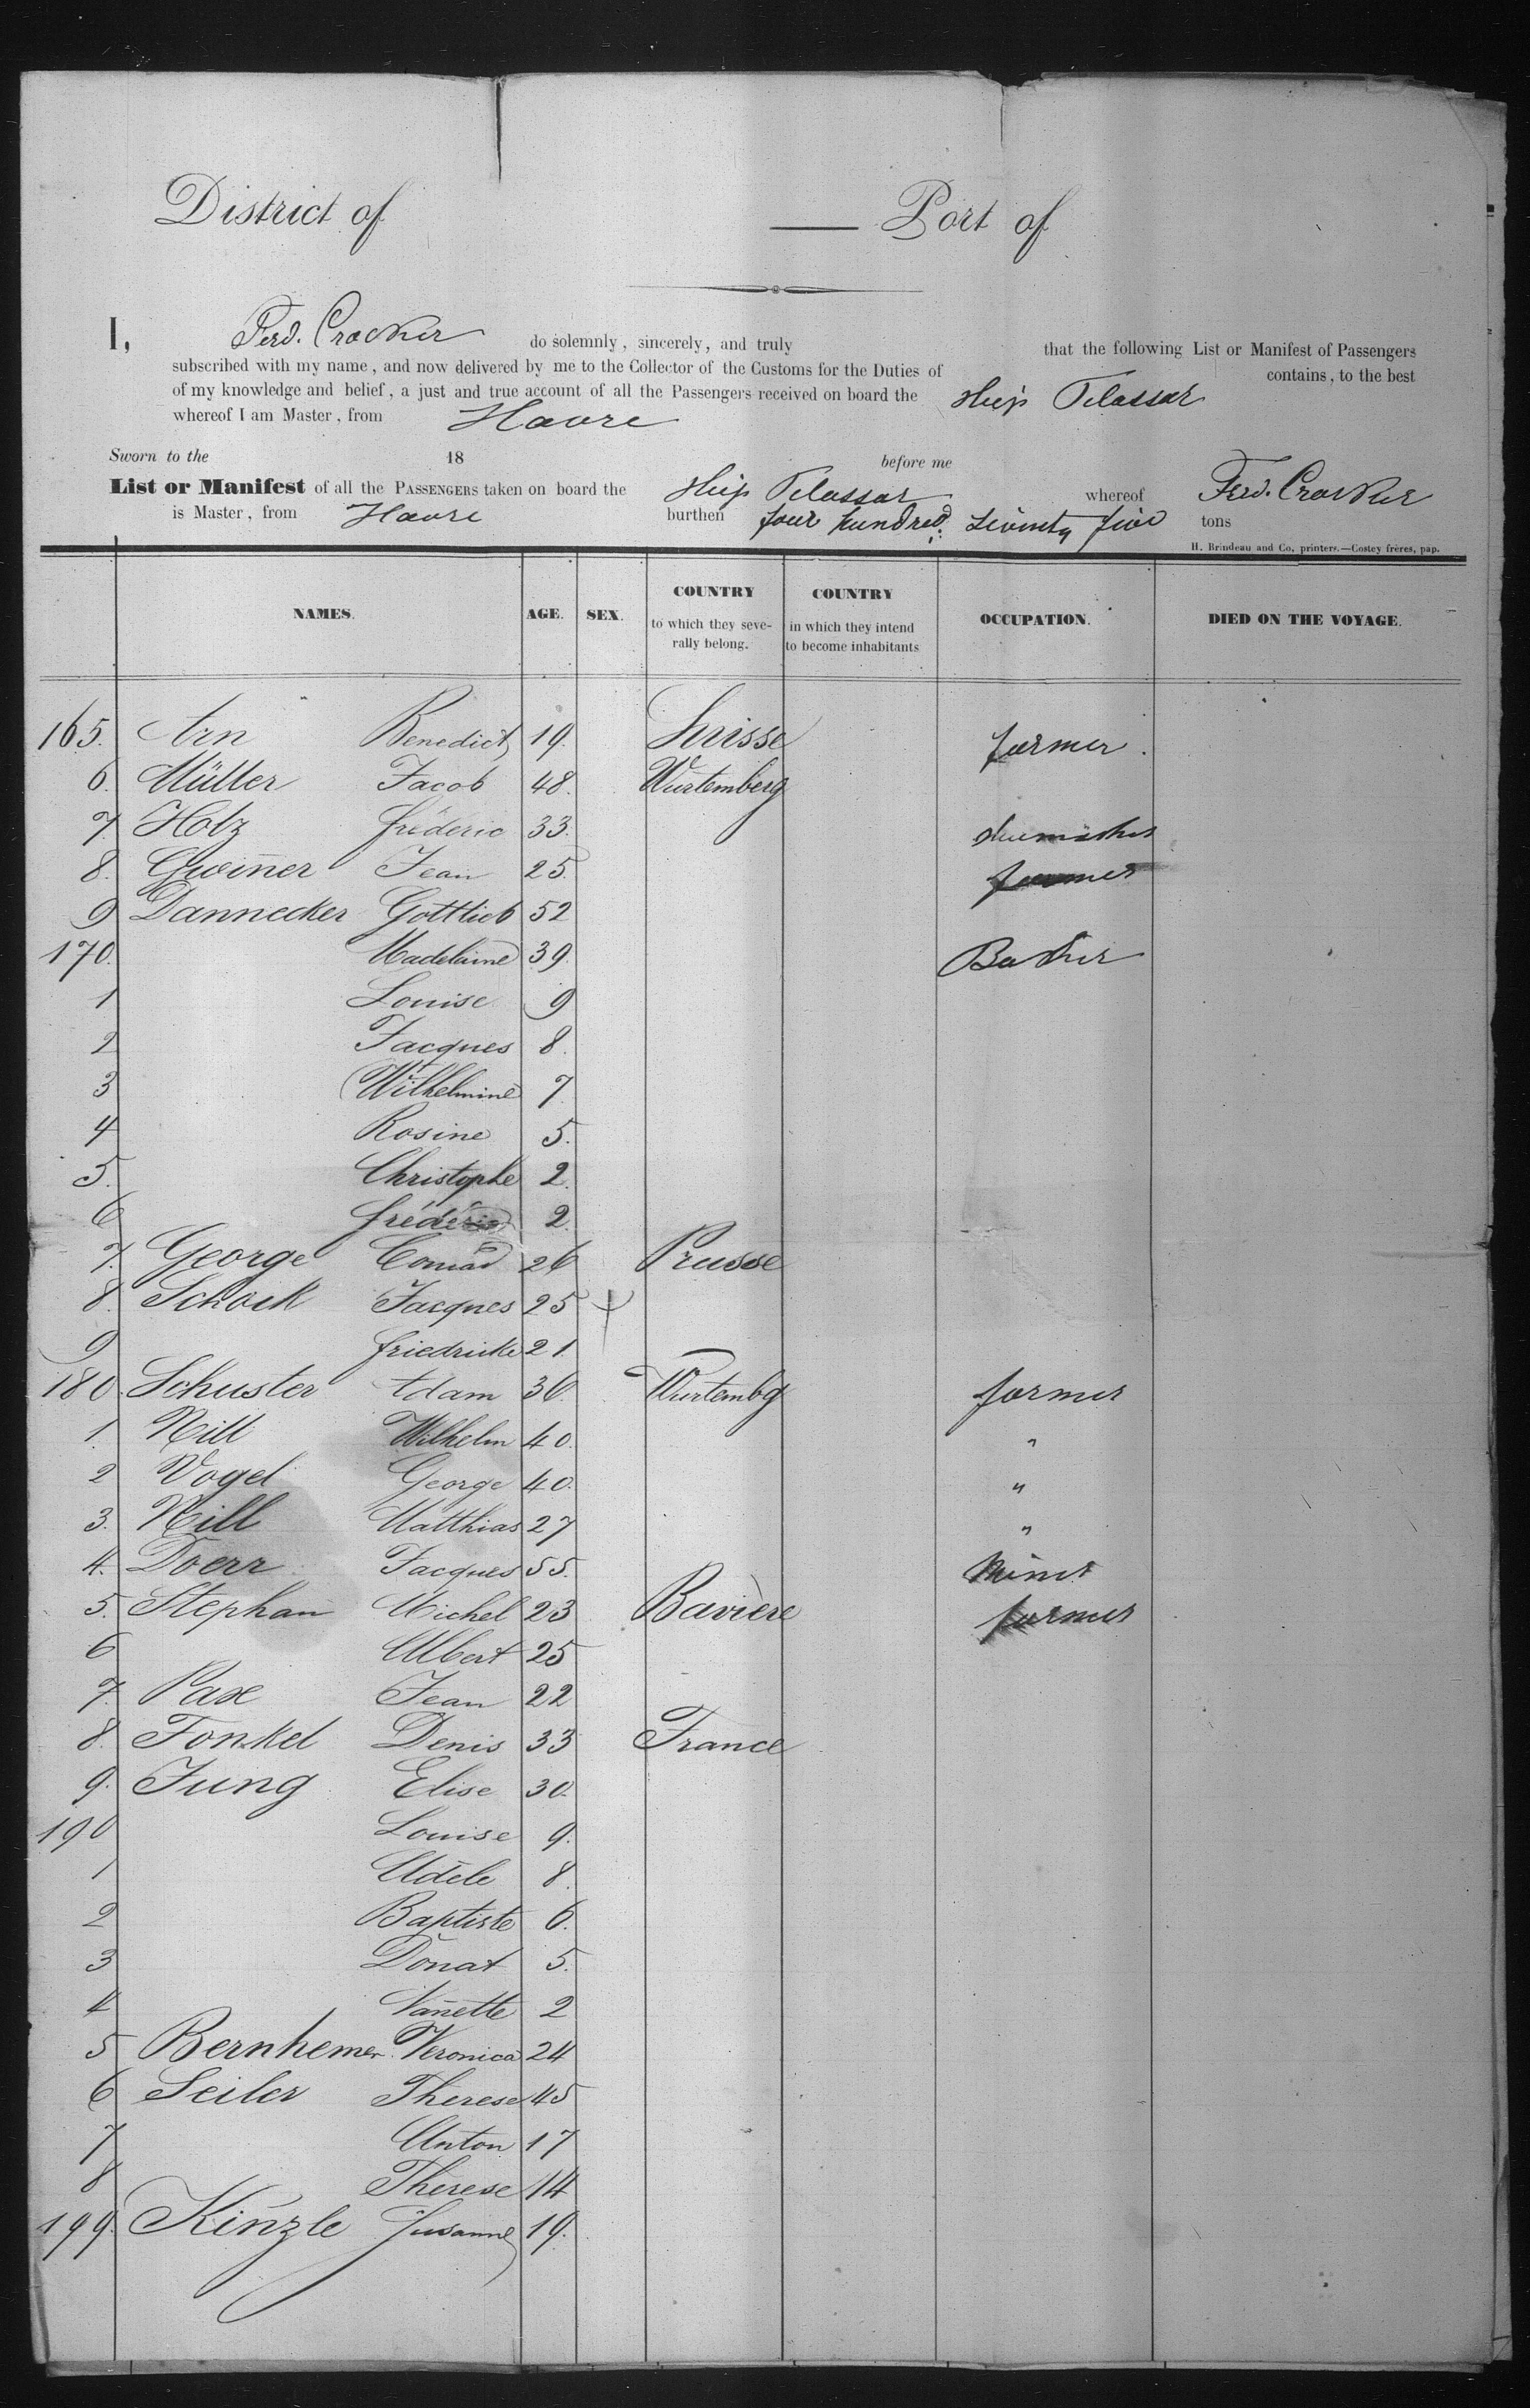 District of — Port of
I, Ferd. Crocker do solemnly, sincerely, and truly that the following List or Manifest of Passengers
subscribed with my name, and now delivered by me to the Collector of the Customs for the Duties of contains, to the best
of my knowledge and belief, a just and true account of all the Passengers received on board the Ship Telassar
whereof I am Master, from Havre
Sworn to the 18 before me
List or Manifest of all the PASSENGERS taken on board the Ship Telassar whereof Ferd. Crocker
is Master, from Havre burthen four hundred seventy five tons
H. Brindeau and Co, printers.—Costey frères, pap.
NAMES. AGE. SEX. COUNTRY to which they severally belong. COUNTRY in which they intend to become inhabitants OCCUPATION. DIED ON THE VOYAGE.
165. Arn Benedict 19. Suisse farmer.
6. Müller Jacob 48. Wurtemberg
7. Holz fréderic 33.
8. Gwin̄er Jean 25. farmer
9 Dannecker Gottlieb 52
170. Madelaine 39. Baker
1 Louise 9
2 Jacques 8.
3 Wilhelmine 7.
4 Rosine 5.
5. Christophe 2.
6 fréderic 2.
7. George Conrad 26 Prusse
8. Schock Jacques 25
9 friedricke 21.
180. Schuster Adam 36. Wurtembg farmer
1. Nill Wilhelm 40. "
2 Vogel George 40. "
3. Nill Matthias 27 "
4. Doerr Jacques 55. Miner
5. Stephan Michel 23 Bavière farmer
6 Albert 25
7. Pax Jean 22
8. Fonkel Denis 33 France
9. Jung Elise 30.
190 Louise 9.
1 Adèle 8.
2 Baptiste 6.
3 Donat 5.
4 Nan̄ette 2
5 Bernhemer Veronica 24
6 Seiler Therese 45
7 Anton 17
8 Thérese 14
199. Kinzle Susanne 19.